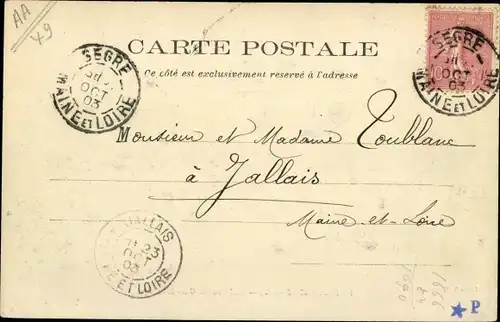 AA
49
SEGRÉ
OCT
03
MAINE ET LOIRE
CARTE POSTALE
Ce côté est exclusivement reservé à l'adresse
SEGRÉ
OCT
03
MAINE ET LOIRE
Monsieur et Madame Toublanc
à Jallais
Maine-et-Loire
JALLAIS
23
OCT
03
ET LOIRE
P